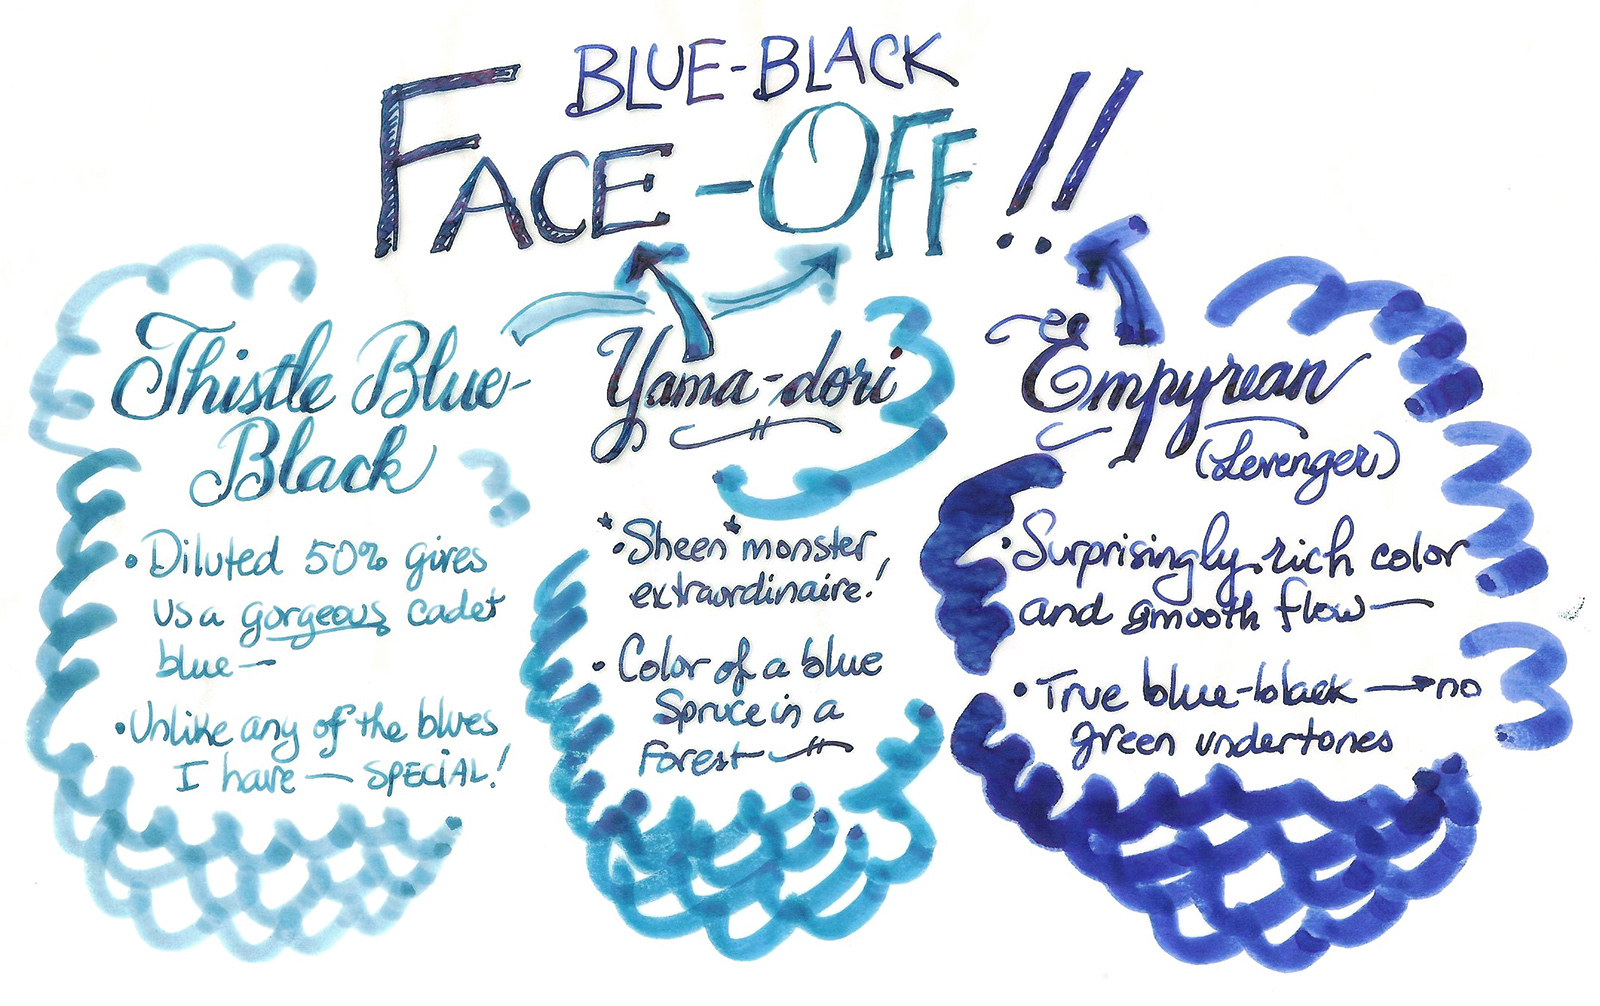 BLUE-BLACK
FACE-OFF!!
Thistle Blue-
Black
• Diluted 50% gives
us a gorgeous cadet
blue—
• Unlike any of the blues
I have — SPECIAL!
Yama-dori
• *Sheen* monster
extraordinaire!
• Color of a blue
Spruce in a
Forest—
Empyrean
(Levenger)
• Surprisingly rich color
and smooth flow—
• True blue-black → no
green undertones